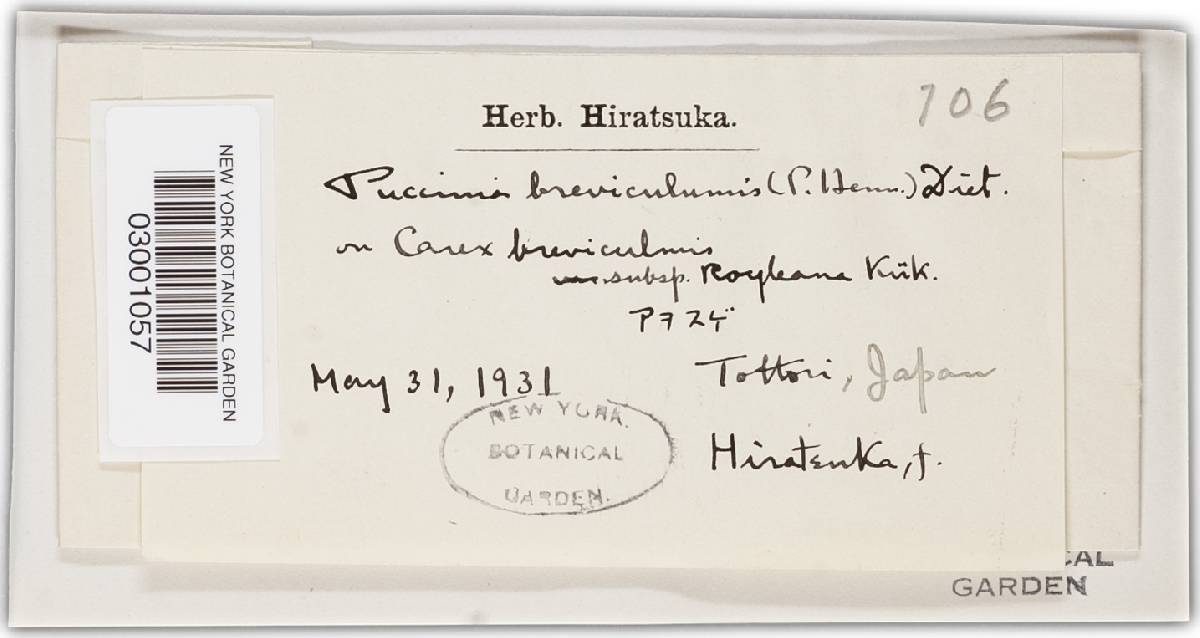 106
Herb. Hiratsuka.
Puccinia breviculumis (P. Henn.) Diet.
on Carex breviculmis
subsp. Royleana Kük.
Tottori, Japan
May 31, 1931
Hiratsuka, f.
NEW YORK
BOTANICAL
GARDEN.
NEW YORK BOTANICAL GARDEN
03001057
CAL
GARDEN